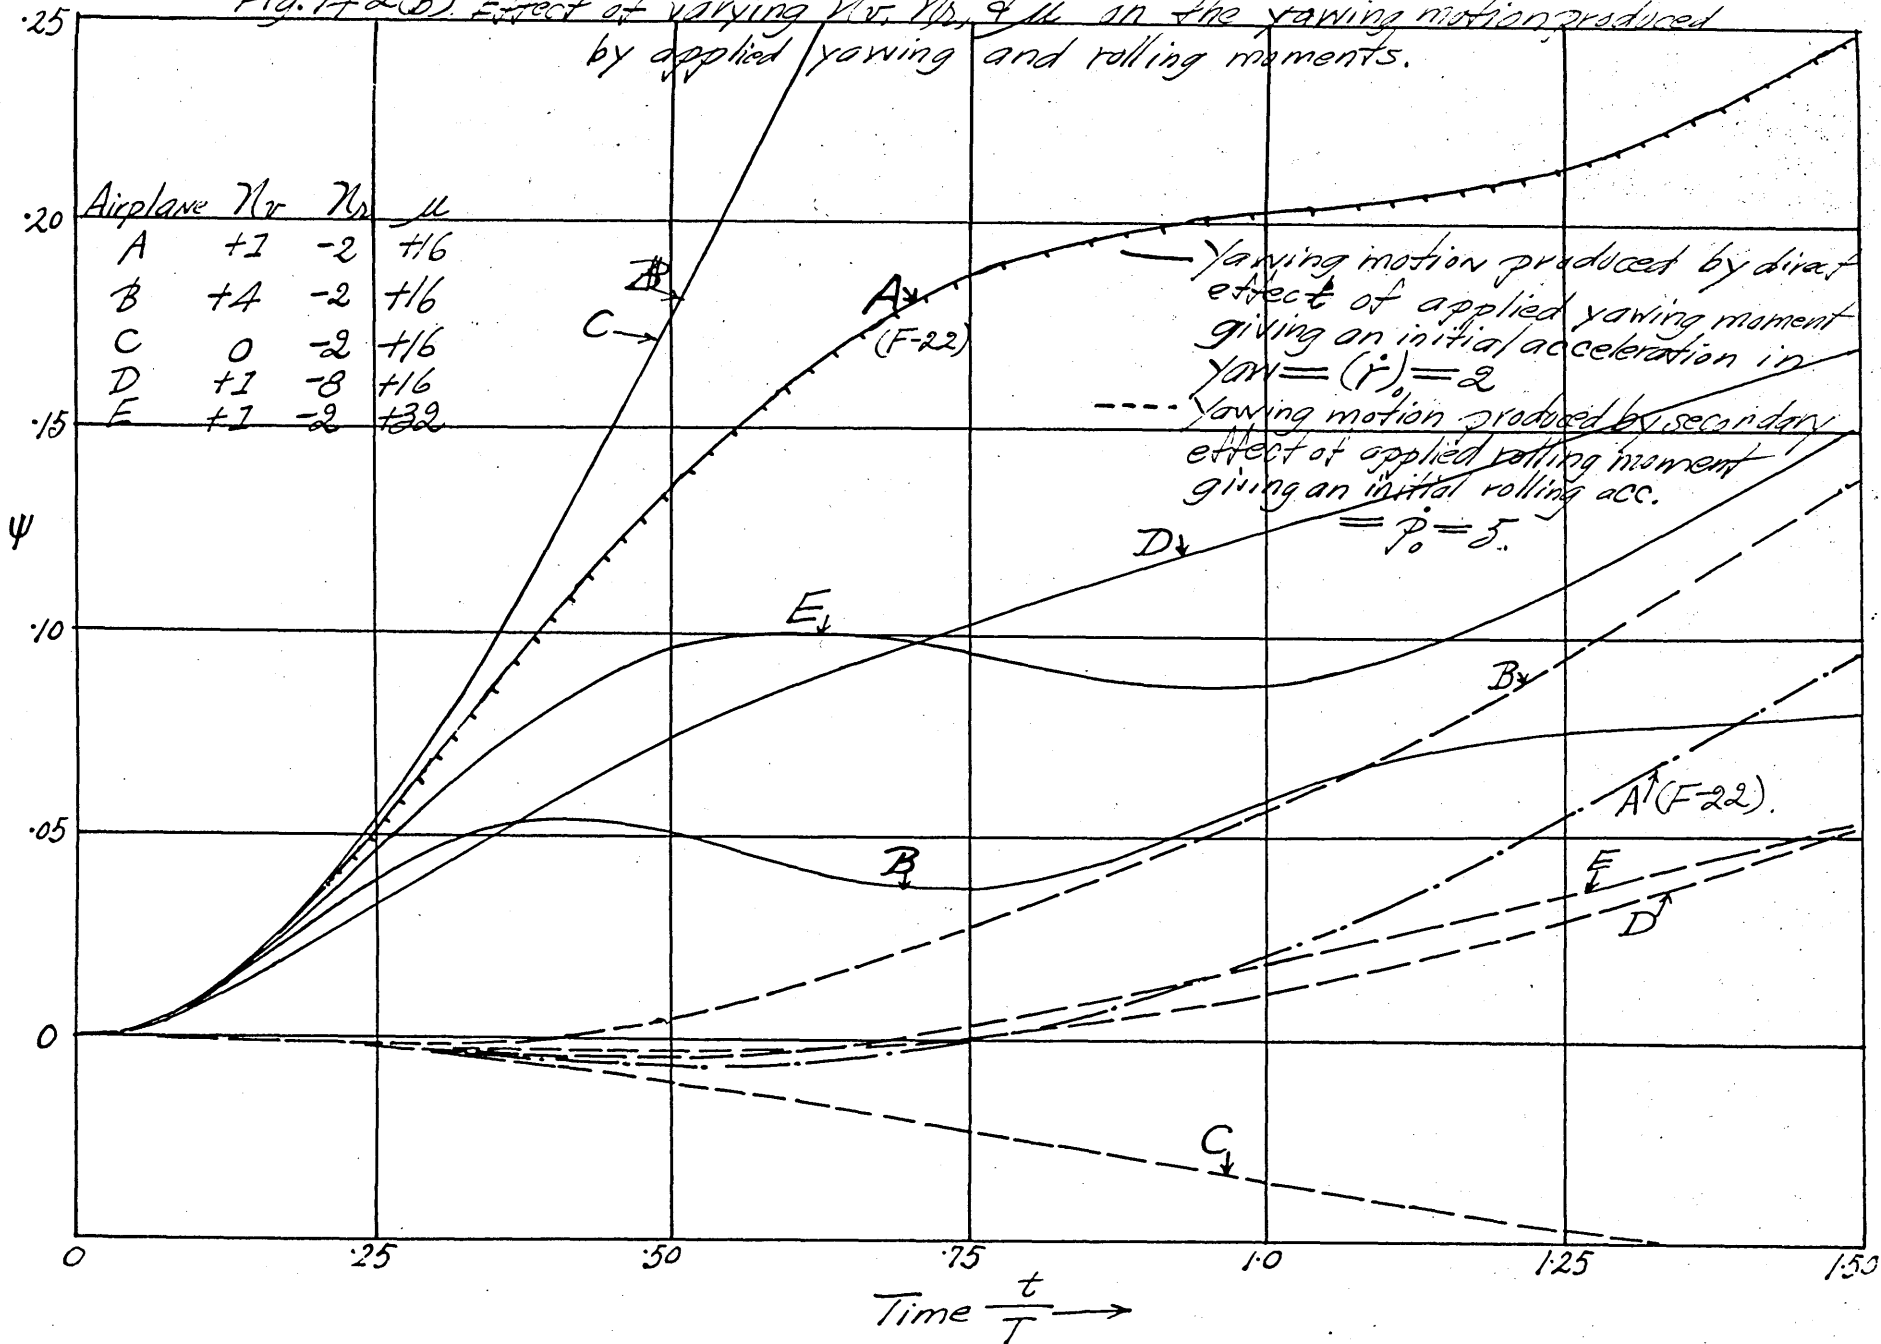 Fig. 1+2(b). Effect of varying nv, nr, & μ on the yawing motion produced
by applied yawing and rolling moments.
.25
.20
.15
.10
.05
0
ψ
Airplane nv nr μ
A +1 -2 +16
B +4 -2 +16
C 0 -2 +16
D +1 -8 +16
E +1 -2 +32
C
A
(F-22)
Yawing motion produced by direct
effect of applied yawing moment
giving an initial acceleration in
yaw = (ṙ)₀ = 2
Yawing motion produced by secondary
effect of applied rolling moment
giving an initial rolling acc.
= ṗ₀ = 5.
D
E
B
A (F-22).
B
E
D
C
0 .25 .50 .75 1.0 1.25 1.50
Time t/T